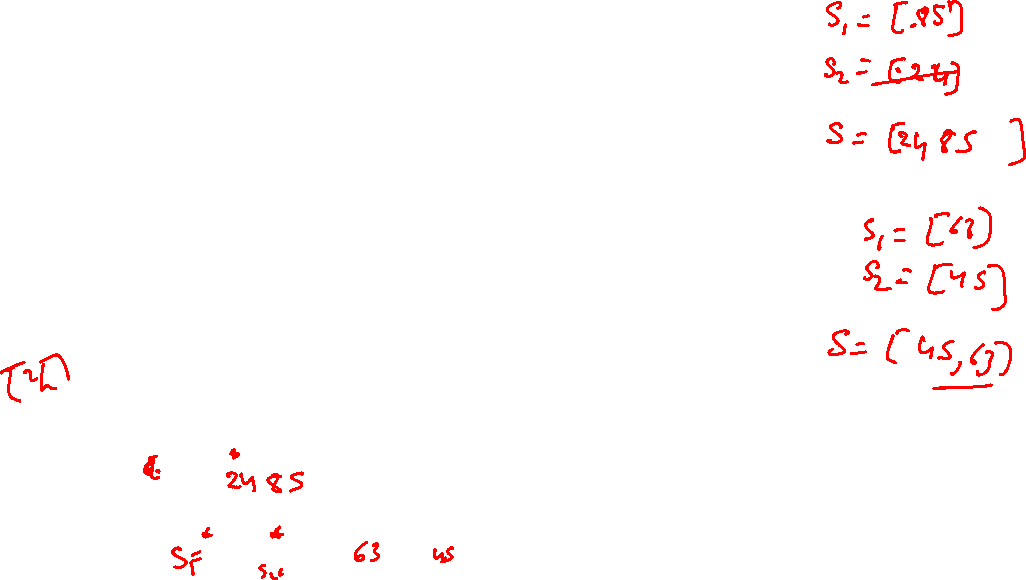 S1 = [.85]
S2 = [.24]
S = [24 85 ]
S1 = [63]
S2 = [45]
S = [45, 63]
[24]
24 85
S1 S2 63 45